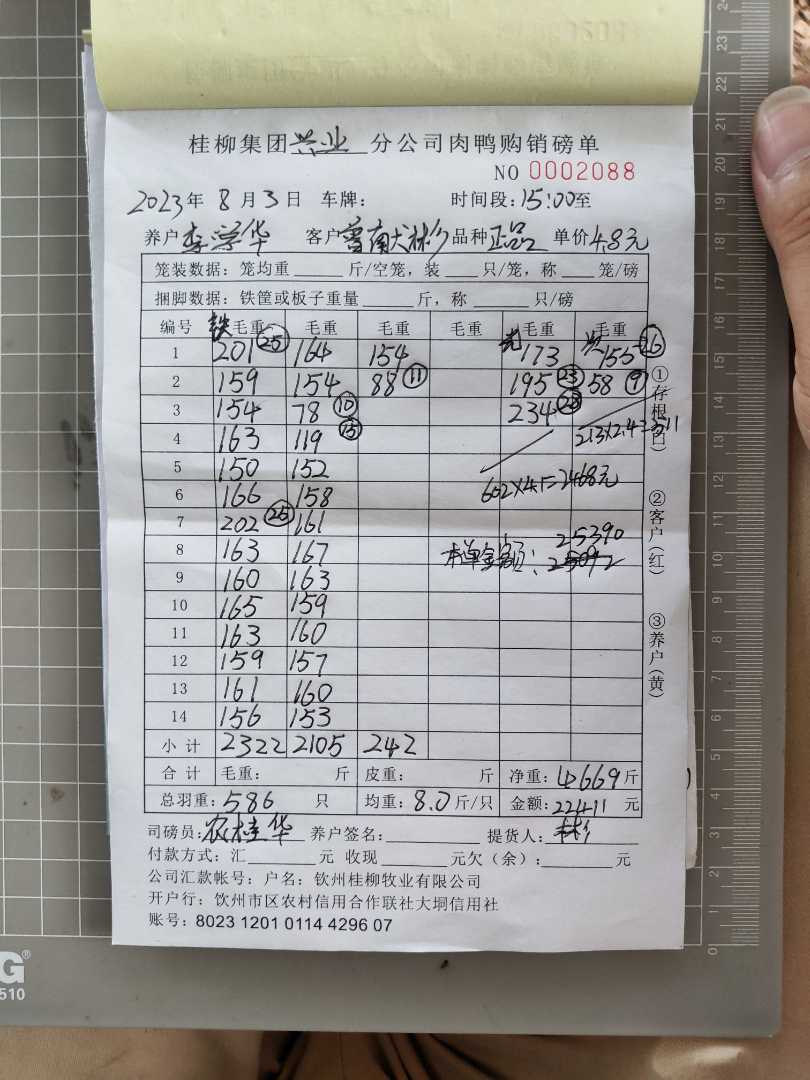 桂柳集团兴业分公司肉鸭购销磅单
NO 0002088
2023年 8月3日 车牌: 时间段:15:00至
养户李学华 客户 品种正品 单价4.8元
笼装数据:笼均重______斤/空笼,装____只/笼,称____笼/磅
捆脚数据:铁筐或板子重量______斤,称______只/磅
编号 铁毛重 毛重 毛重 毛重 毛重 毛重
1 201 25 164 154 173 155 26
2 159 154 88 11 195 23 58 9
3 154 78 10 234 28
4 163 119 15 213×2.4=511
5 150 152
6 166 158 602×4.1=2468元
7 202 25 161
8 163 167 本单金额: 25390
9 160 163
10 165 159
11 163 160
12 159 157
13 161 160
14 156 153
小计 2322 2105 242
合计 毛重: 斤 皮重: 斤 净重:4669斤
总羽重:586 只 均重:8.0斤/只 金额:22411 元
司磅员:农桂华 养户签名:________ 提货人:林杉
付款方式:汇________元 收现________元欠(余):________元
公司汇款帐号:户名:钦州桂柳牧业有限公司
开户行:钦州市区农村信用合作联社大垌信用社
账号:8023 1201 0114 4296 07
①存根(白)
②客户(红)
③养户(黄)
G®
510
0 1 2 3 4 5 6 7 8 9 10 11 12 13 14 15 16 17 18 19 20 21 22 23 24